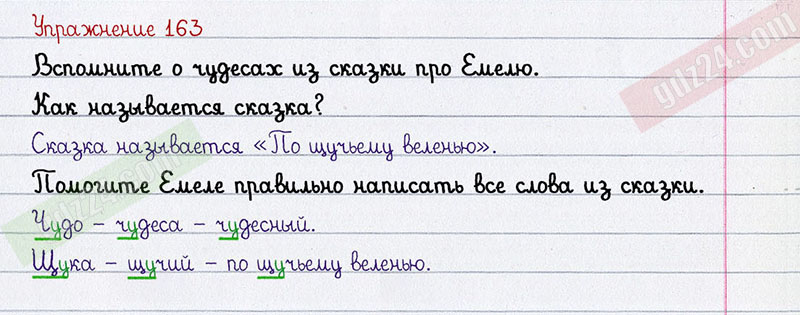 Упражнение 163
Вспомните о чудесах из сказки про Емелю.
Как называется сказка?
Сказка называется «По щучьему веленью».
Помогите Емеле правильно написать все слова из сказки.
Чудо – чудеса – чудесный.
Щука – щучий – по щучьему веленью.
gdz24.com
gdz24.com